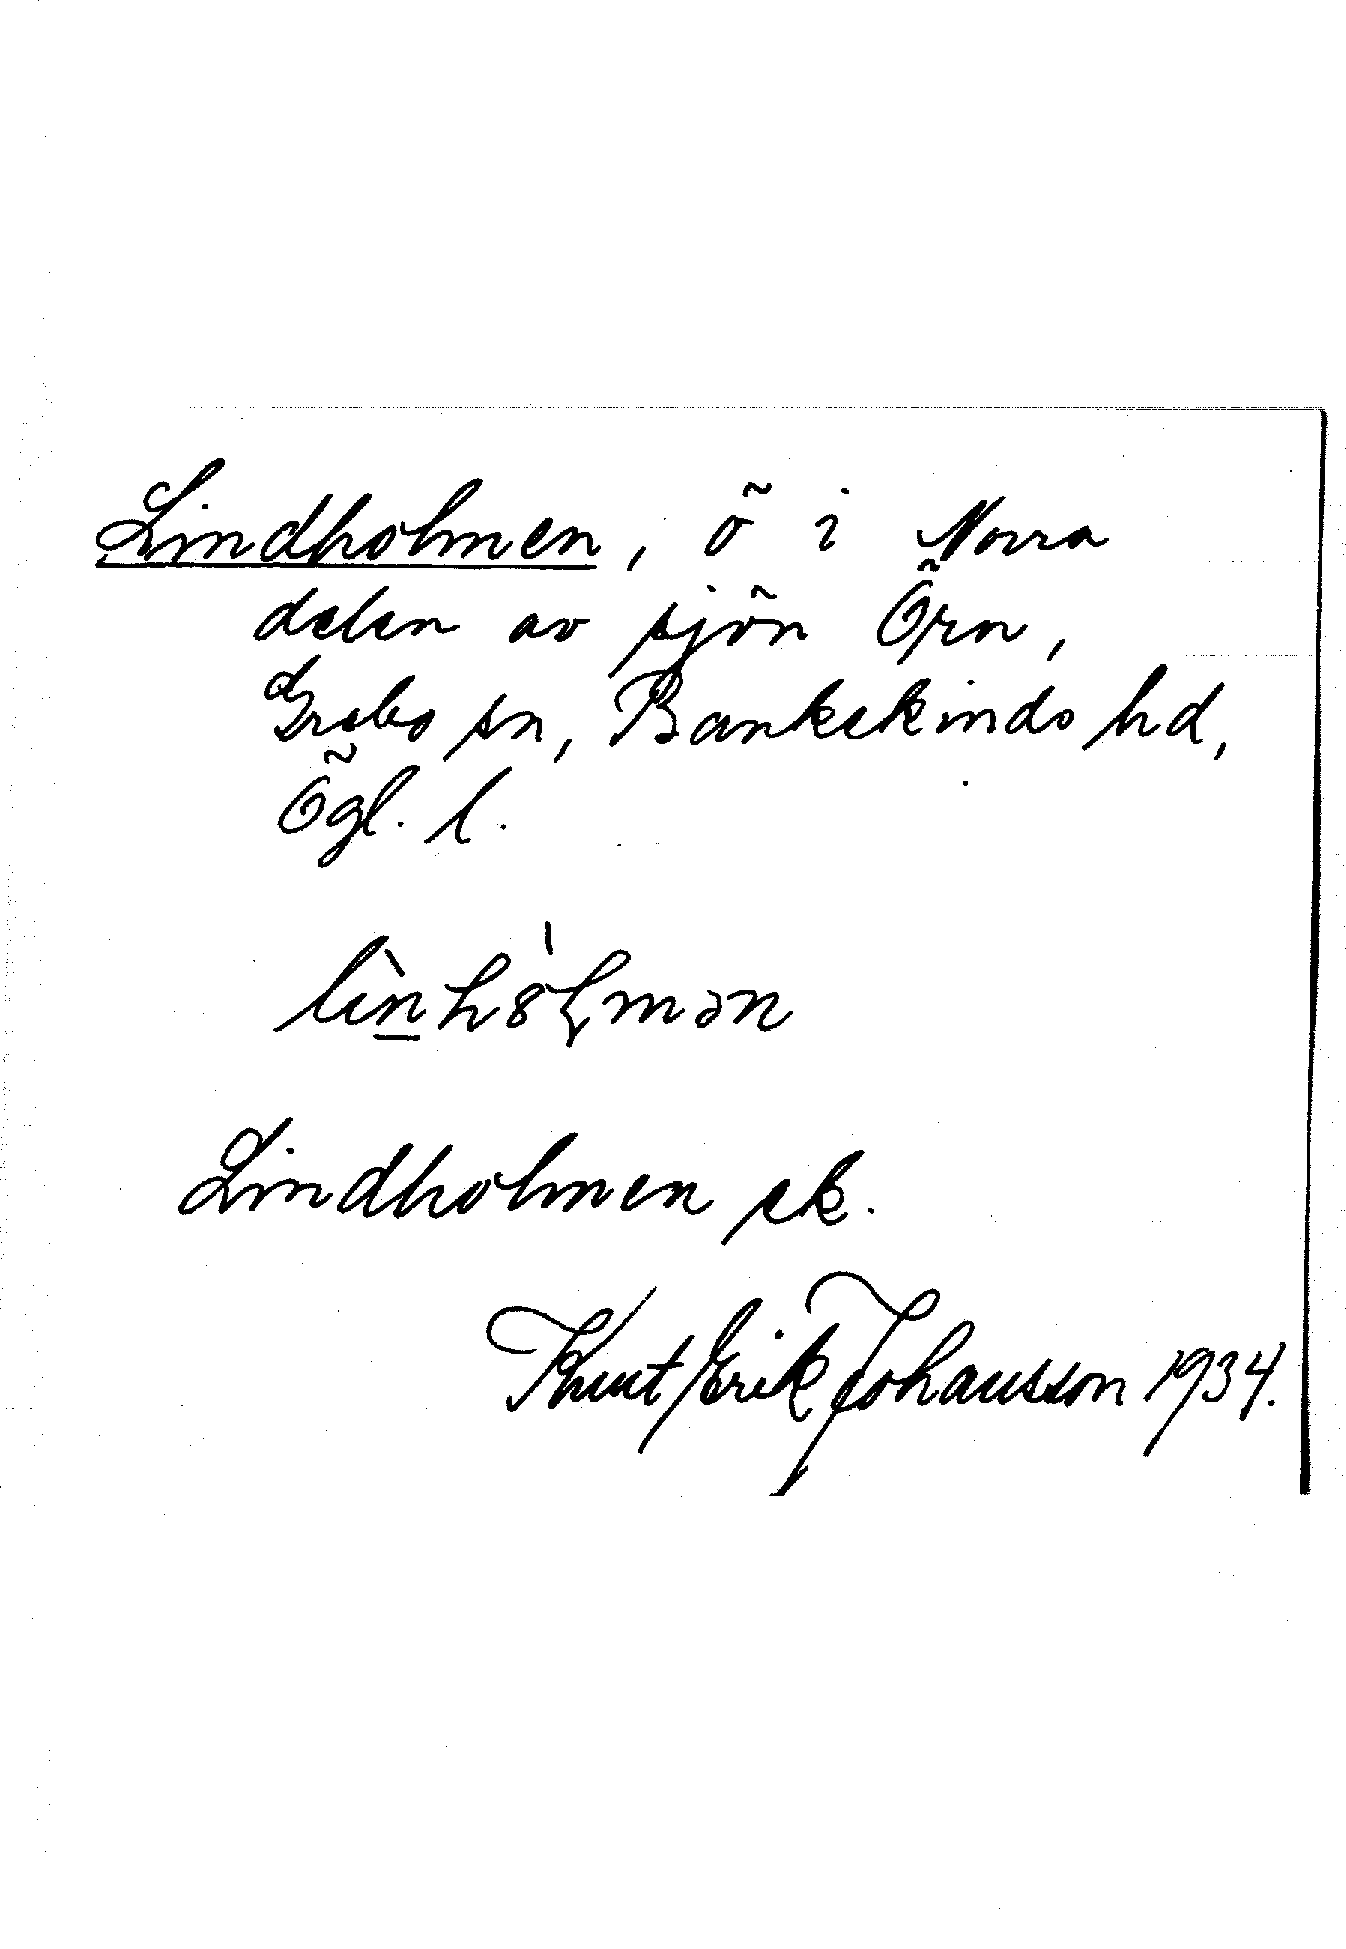 Lindholmen, ö i Norra
delen av sjön Örn,
Grebo sn, Bankekinds hd,
Ögl. l.
lìn̲hòlmən
Lindholmen ek.
Knut Erik Johansson 1934.